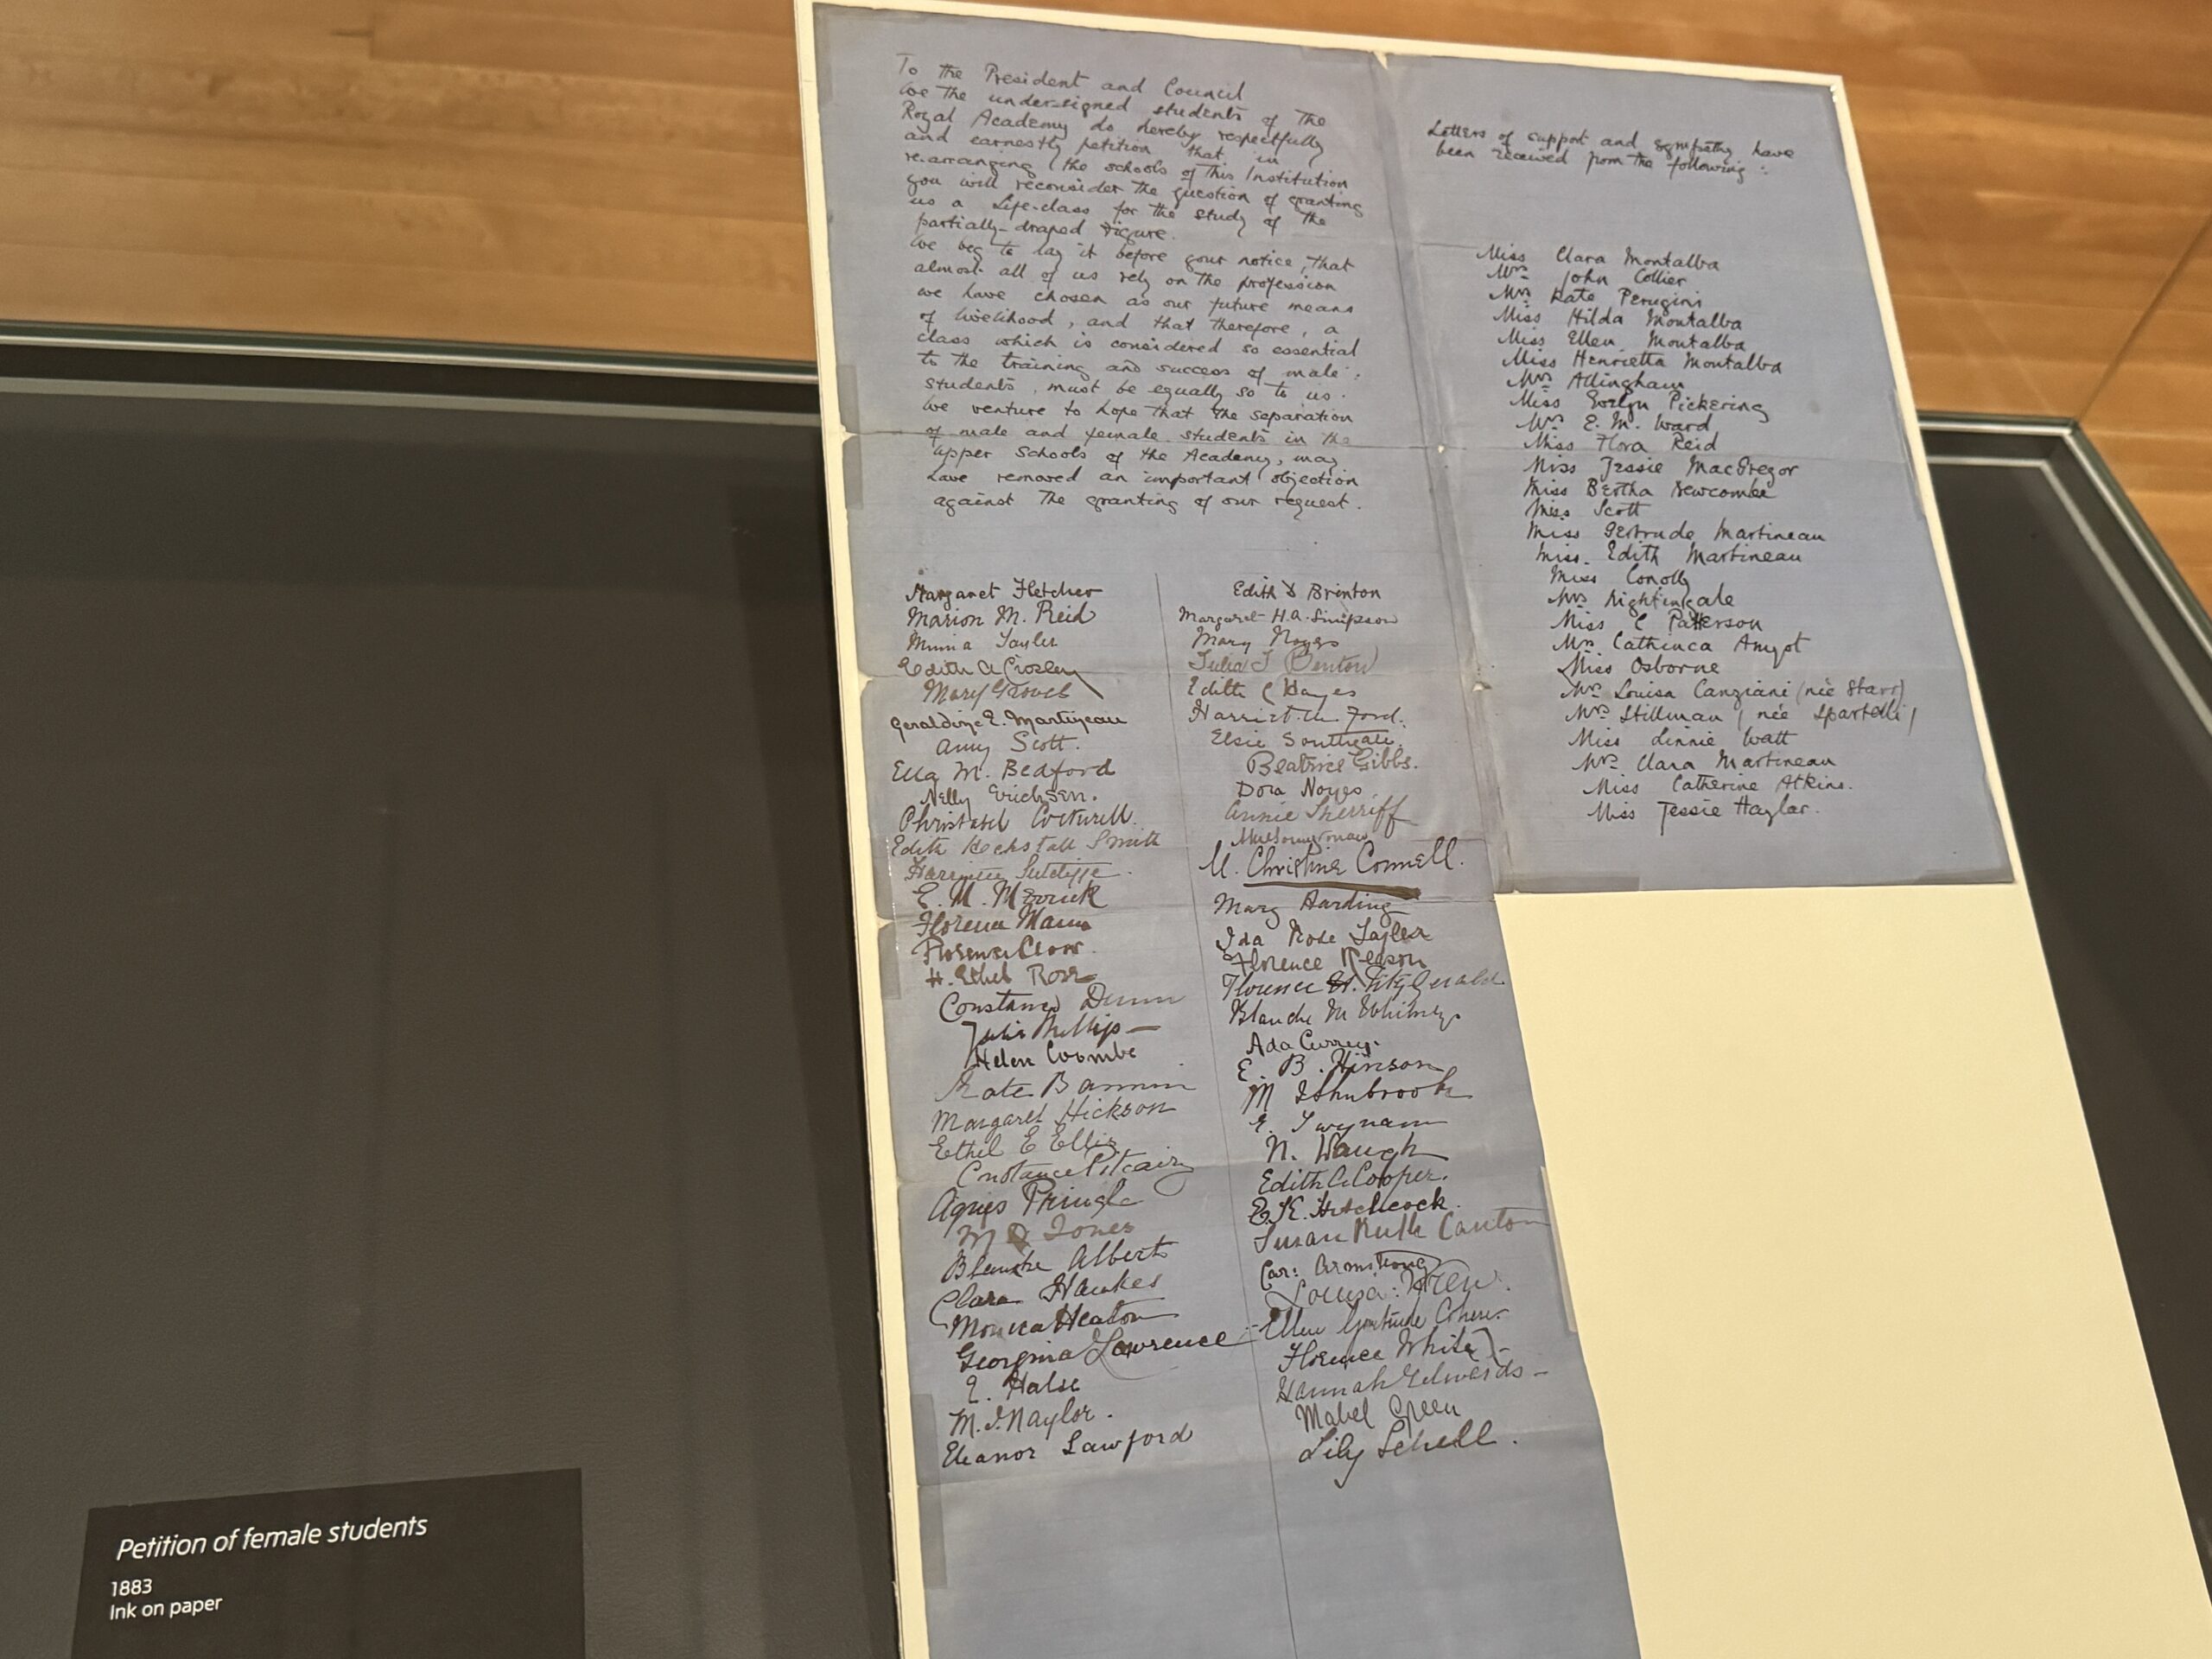 To the President and Council
We the under-signed students of the
Royal Academy do hereby respectfully
and earnestly petition that in
re-arranging the schools of this Institution
you will reconsider the question of granting
us a Life-class for the study of the
partially-draped figure.
We beg to lay it before your notice, that
almost all of us rely on the profession
we have chosen as our future means
of livelihood, and that therefore, a
class which is considered so essential
to the training and success of male
students, must be equally so to us.
We venture to hope that the separation
of male and female students in the
upper schools of the Academy, may
have removed an important objection
against the granting of our request.
Margaret Fletcher
Marion M. Reid
Minna Tayler
Edith A Crossley
Mary Groves
Geraldine E. Martineau
Amy Scott.
Ella M. Bedford
Nelly Erichsen.
Christabel Cockerell.
Edith Heckstall Smith
Harriette Sutcliffe.
E. M. Merrick
Florence Mann
Florence Clow.
H. Ethel Rose
Constance Dunn
Julia Phillips
Helen Coombe
Kate
Margaret Hickson
Ethel E Ellis
Constance Pitcairn
Agnes Pringle
M Jones
Blanche Albert
Clara Hawkes
Monica Heaton
Georgina Lawrence
E. Halse
M. I. Naylor.
Eleanor Lawford
Edith Brinton
Margaret H.A. Simpson
Mary Noyes
Julia Benton
Edith C Hayes
Harriet M. Ford.
Elsie Southgate.
Beatrice Gibbs.
Dora Noyes.
Annie Sherriff
M. Christine Connell.
Mary Harding
Ida Rose Tayler
Florence Reason
Florence Fitzgerald
Blanche M Whitney
Ada Currey.
E. B. Hinson
M
E. Twynam
N. Waugh
Edith A. Cooper.
E. K. Hitchcock.
Susan Ruth Canton
Car: Armstrong
Louisa:
Ellen Gertrude Cohen.
Florence White
Hannah Edwards
Mabel Green
Lily Schell.
Letters of support and sympathy have
been received from the following :
Miss Clara Montalba
Mrs John Collier
Mrs Kate Perugini
Miss Hilda Montalba
Miss Ellen Montalba
Miss Henrietta Montalba
Mrs Allingham
Miss Evelyn Pickering
Mrs E. M. Ward
Miss Flora Reid
Miss Jessie MacGregor
Miss Bertha Newcombe
Miss Scott
Miss Gertrude Martineau
Miss. Edith Martineau
Miss Conolly
Mrs Nightingale
Miss C Patterson
Mrs Cathinca Amyot
Miss Osborne
Mrs Louisa Canziani (née Starr)
Mrs Stillman (née Spartelli)
Miss Linnie Watt
Mrs Clara Martineau
Miss Catherine Atkins.
Miss Jessie Haylar.
Petition of female students
1883
Ink on paper